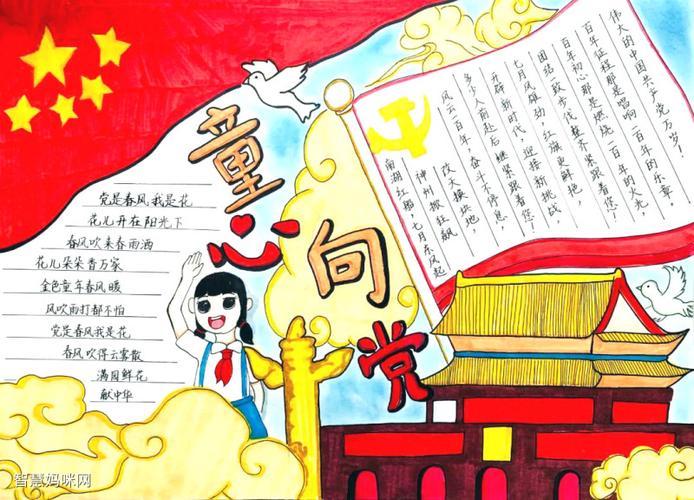 童心向党
党是春风我是花
花儿开在阳光下
春风吹来春雨洒
花儿朵朵香万家
金色童年春风暖
风吹雨打都不怕
党是春风我是花
春风吹得云雾散
满园鲜花
献中华
南湖红船,七月东风起
神州掀狂飙
改天换地,
风云一百年,奋斗不停息,
多少人前赴后继紧跟着您!
开辟新时代,迎接新挑战,
七月风雄劲,红旗更鲜艳,
团结一致步伐整齐紧跟着您!
百年初心那是燃烧一百年的火光,
百年征程那是唱响一百年的乐章
伟大的中国共产党万岁!
智慧妈咪网